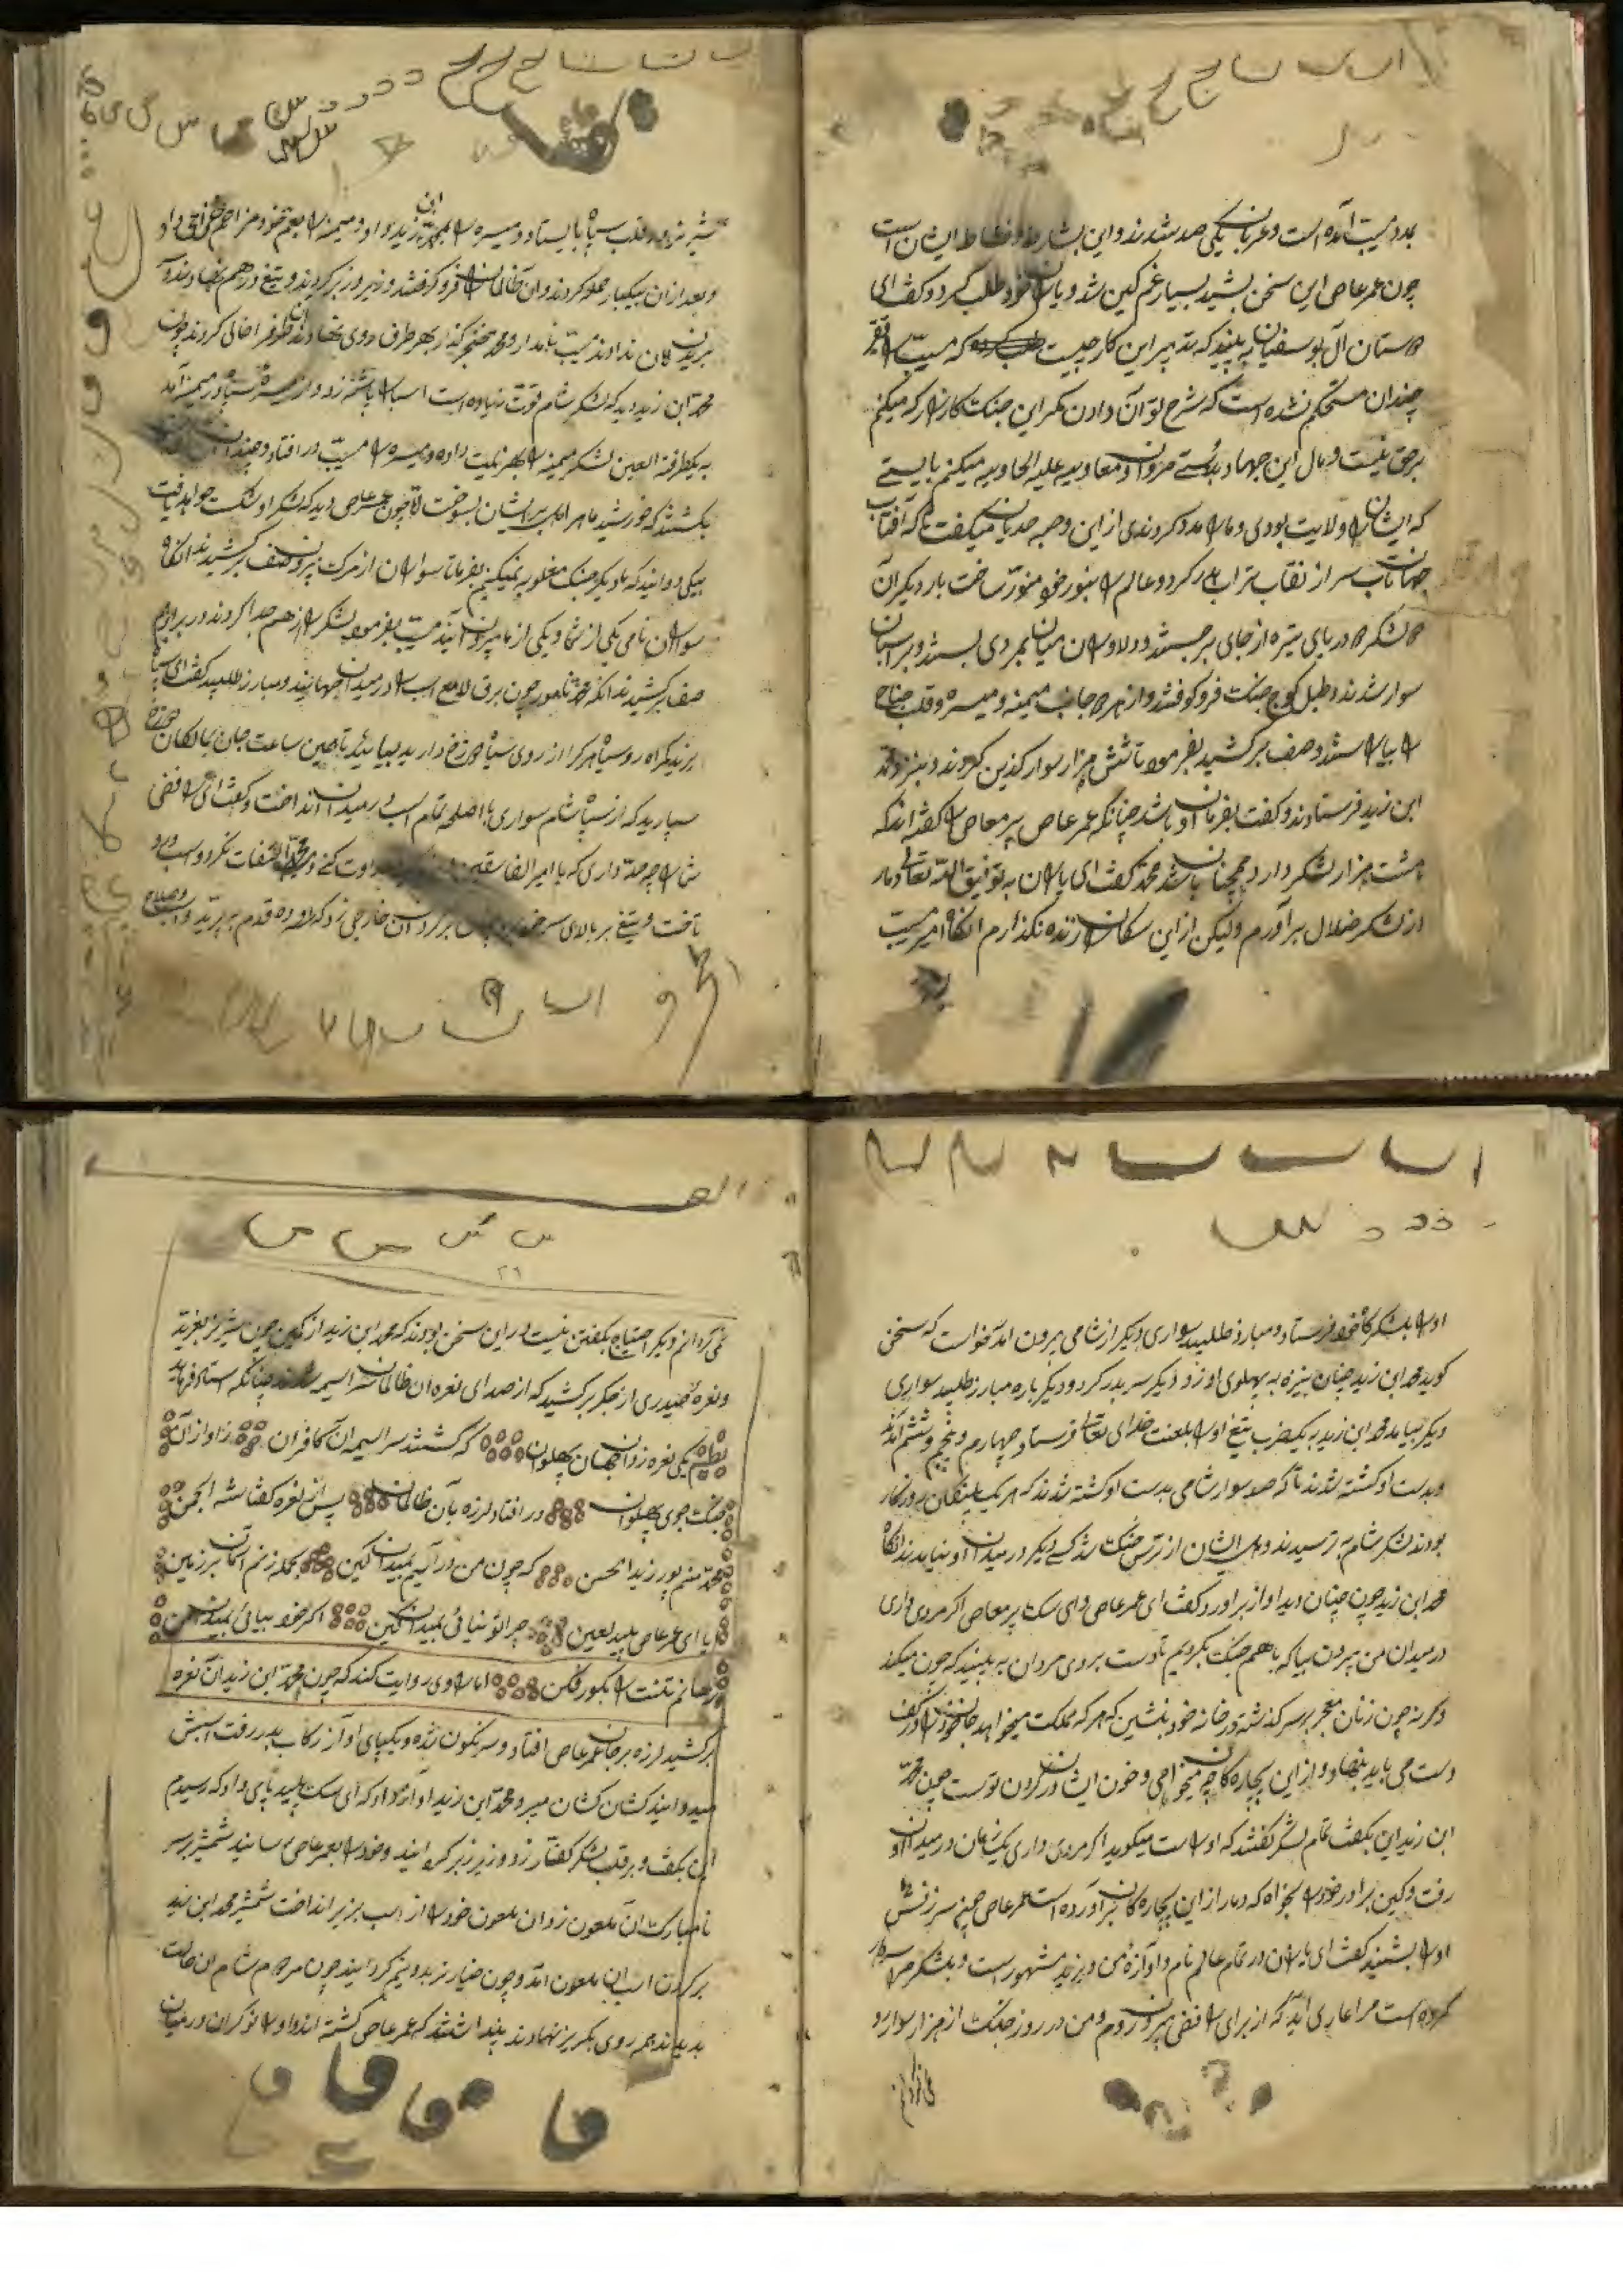 بمدد مسیب آمده است و عربان یکی صد شدند و این بشارت و نشاط ایشان است
چون عمر عاص این سخن بشنید بسیار غمگین شد و یاران خود طلب کرد و گفت ای
دوستان آل بوسفیان به بینید که تدبیر این کار چیست که مسیب
چندان مستحکم نشده است که شرح توان دادن مگر این جنگ کارزار که میکنم
برحق نیست و بال این جهاد بدوستی مروان و معاویه علیه الهاویه میکنم بایستی
که ایشانرا ولایت بودی و ما را مدد کردندی از این وجه میگفت تا که آفتاب
جهانتاب سر از نقاب تراب بدر کرد و عالم را بنور خود منور ساخت بار دیگر آن
دو لشکر دریای تیره از جای برجستند و دلاوران میان بمردی بستند و بر اسبان
سوار شدند و طبل کوچ جنگ فرو کوفتند و از هر دو جانب میمنه و میسره و قلب جناح
را بیاراستند و صف برکشید بفرمود تا شش هزار سوار گزین کردند و بنزد محمد
ابن زید فرستادند و گفت بفرمان او باشد چنانکه عمر عاص پر معاصی را گفته اند که
هشت هزار لشکر دارد همچنان باشد محمد گفت ای یاران به توفیق الله تعالی دمار
از لشکر ضلال برآورم ولیکن از این سگان را زنده نگذارم آنگاه امیر مسیب
شیر نر در قلب سپاه بایستاد و میسره را بمحمد ابن زید داد و میمنه را بعم خود مزاحم خزاعی داد
و بعد از آن بیکبار حمله کردند و آن ظالمان را فرو گرفتند و زیر و زبر کردند و تیغ در هم نهادند و
بریدن امان ندادند مسیب نامدار و محمد خنجر گذار بهر طرف روی نهادند آن طرف را خالی کردند چون
محمد ابن زید دید که لشکر شام قوت زیاده است اسب را پاشنه زد و از میسره سپاه در میمنه آمد
به یکطرفة العین لشکر میمنه را بهزیمت داده و میسره را مسیب در افتاد و چندان
بکشتند که خورشید ماهر افلاک بر ایشان بسوخت تا چون عمر عاص دید که لشکر او شکست خواهد یافت
پیکی دوانید که بار دیگر جنگ مغلوبه نمیکنیم بفرما تا سواران از مرکب بیرون صف برکشیدند آنگاه
سواران نامی یکی از شما و یکی از ما بیرون آیند مسیب بفرمود لشکر را از هم جدا کردند در برابر هم
صف برکشیدند آنگه محمد نامور چون برق لامع اسب را در میدان جهانید و مبارز طلبید گفت ای سپاه
یزید گمراه روسیاه هر که را از روی سیاه دوزخ دارید بیائید تا همین ساعت جان بمالکان دوزخ
سپارید که از سپاه شام سواری با اصلحه تمام اسب در میدان انداخت و گفت ای رافضی
شما را چه حد داری که با امیر الفاسقین عداوت کنی محمد التفات نکرد و اسب در او
تاخت و تیغ بر بالای سر خود برد چنان بر گردن آن خارجی زد که ده قدم به پرید و اسب و صلاح
او را بلشکرگاه خود فرستاد و مبارز طلبید سواری دیگر از شامی بیرون آمد خواست که سخن
گوید محمد ابن زید چنان نیزه به پهلوی او زد و دیگر سر بدر کرد و دیگر باره مبارز طلبید سواری
دیگر بیامد محمد ابن زید به یکضرب تیغ او را بلعنت خدای تعالی فرستاد چهارم و پنجم و ششم آمدند
و بدست او کشته شدند تا که صد سوار شامی بدست او کشته شدند که هر یک پلنگان روزگار
بودند لشکر شام بترسیدند و دل ایشان از ترس جنگ شد کسی دیگر در میدان او نیامدند آنگاه
محمد ابن زید چون چنان دید آواز برآورد و گفت ای عمر عاص و ای سگ پر معاصی اگر مردی داری
در میدان من بیرون بیا که با هم جنگ بگردیم تا دست بروی مردان به بینید که چون میکند
و گرنه چون زنان معجر بر سر گذاشته در خانه خود بنشین که هر که مملکت میخواهد جان خود را در کف
دست می باید نهاد و از این بیچاره گان چه میخواهی و خون ایشان در گردن تو است چون محمد
ابن زید این بگفت تمام لشکر گفتند که او راست میگوید اگر مردی داری یک زمان در میدان او
رفت و کین برادر خود را بخواه که دمار از این بیچاره گان برآورده است عمر عاص چنین سرزنش
او را بشنید گفت ای یاران در تمام عالم نام و آوازه من و یزید مشهور است و بلشکر مرا سردار
کرده است مرا عار می آید که از برای رافضی بیرون روم و من در روز جنگ از هزار سوار رو
می گردانم
نمی گردانم و دیگر احتیاج بگفتن نیست در این سخن بودند که محمد ابن زید از کمین چون شیر نر بغرید
و نعره حیدری از جگر برکشید که از صدای نعره آن ظالمان سراسیمه شدند چنانکه استاد فرماید
نظم یکی نعره زد آن جهان پهلوان که گشتند سراسیمه آن کافران ز آواز آن
جنگ جوی پهلوان در افتاد لرزه بآن ظالمان پس از نعره گفتا شه انجمن
محمد منم پور زید الحسن که چون من در آیم بمیدان کین بجمله زنم آسمان بر زمین
ایا ای عمر عاص پلید لعین چرا تو نیائی بمیدان کین اگر خود بیائی بمیدان من
رهانم تنت را بگور و کفن اما راوی روایت کند که چون محمد ابن زید آن نعره
برکشید لرزه بر جان عمر عاص افتاد و سرنگون شده و یکپای او از رکاب بدر رفت اسبش
میدوانید کشان کشان میبرد محمد ابن زید آواز داد که ای سگ پلید پای دار که رسیدم
این بگفت و بر قلب لشکر کفار زد و زیر و زبر گردانید و خود را بعمر عاص رسانید شمشیر بر سر
نامبارک آن ملعون زد آن ملعون خود را از اسب بزیر انداخت شمشیر محمد ابن زید
بر گردن اسب آن ملعون آمد و چون خیار تر بدو نیم گردانید چون مردم شام آن حالت
بدیدند همه روی بگریز نهادند پنداشتند که عمر عاص کشته شد او را نوکران در میان